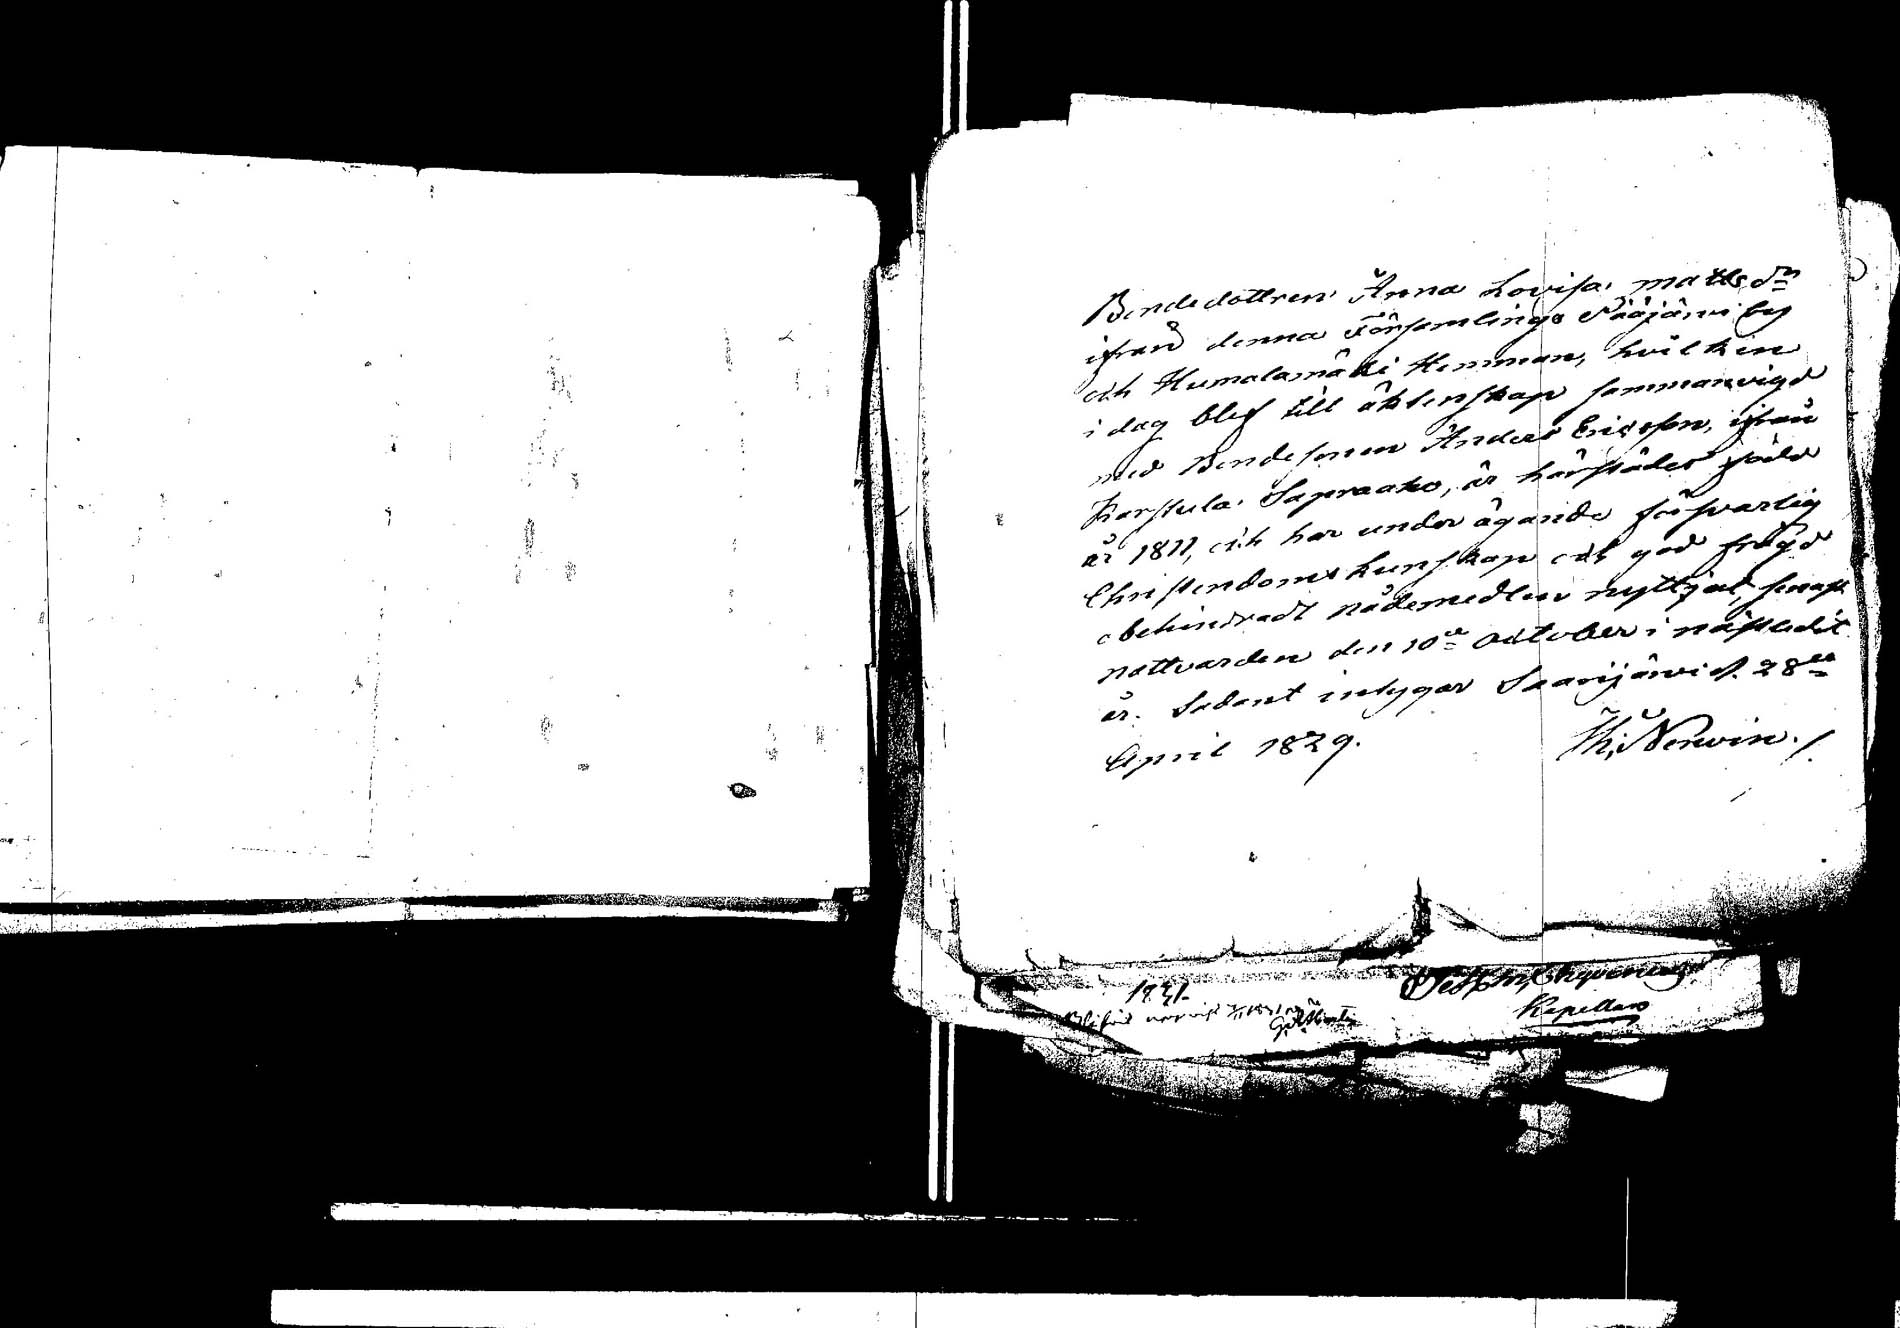 Bondedottren Anna Lovisa Mattsdr
ifrån denna Församlings Pääjärvi by
och Humalamäki Hemman, hvilken
i dag blef till äktenskap sammanvigd
med Bondesonen Anders Ericsson, ifrån
Karstula, är härstädes född
år 1811, och har under ägande försvarlig
Christendoms kunskap och god frägd
obehindradt nådemedlen nyttjat, senast
nattvarden den 10de October i nästledit
år. Sådant intygar Saarijärvi d. 28de
April 1829. Th. Nerwin./.
1831.
Kapellan